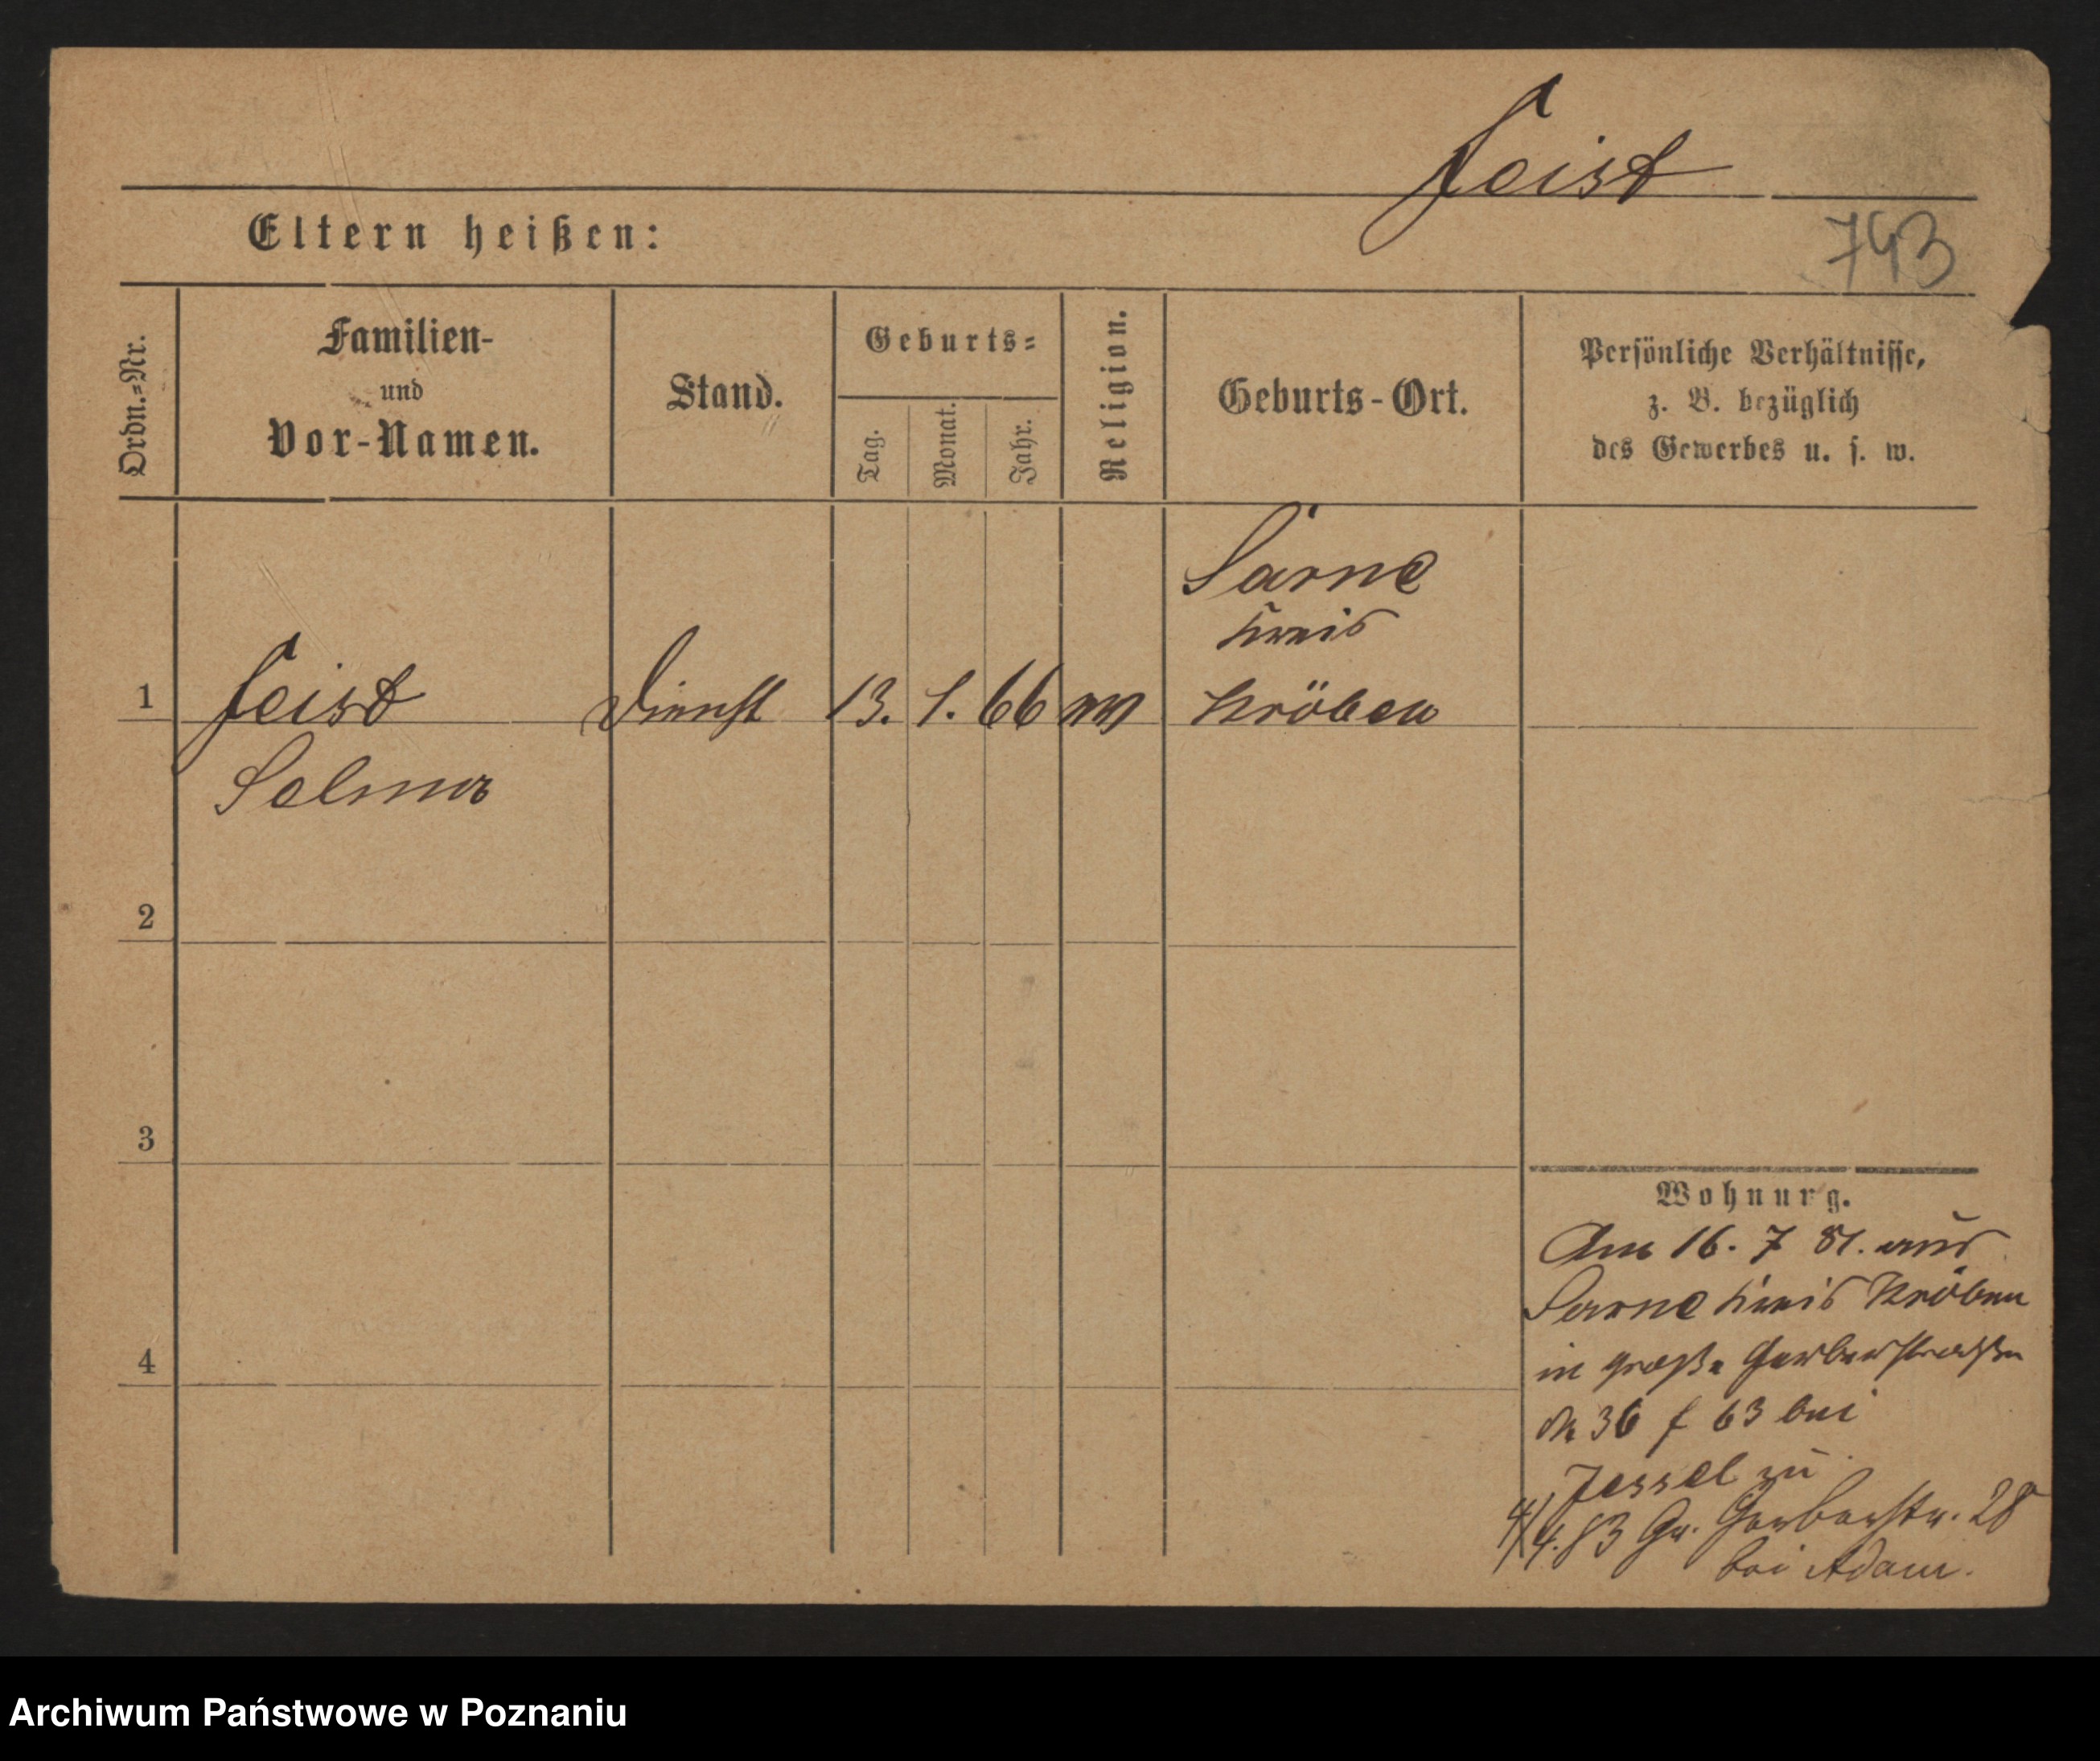 Feist
Eltern heißen:
743
Ordn.=Nr.
Familien-
und
Vor-Namen.
Stand.
Geburts=
Tag.
Monat.
Jahr.
Religion.
Geburts-Ort.
Persönliche Verhältnisse,
z. B. bezüglich
des Gewerbes u. s. w.
Sarne
Kreis
1 Feist Dienst 13. 1. 66 Kröben
Selma
2
3
4
Wohnung.
Am 16. 7 81. aus
Sarne Kreis Kröben
in große Gerberstraße
No 36 f 63 bei
Jessel zu
4/4. 83 Gr. Gerberstr. 28
bei Adam.
Archiwum Państwowe w Poznaniu